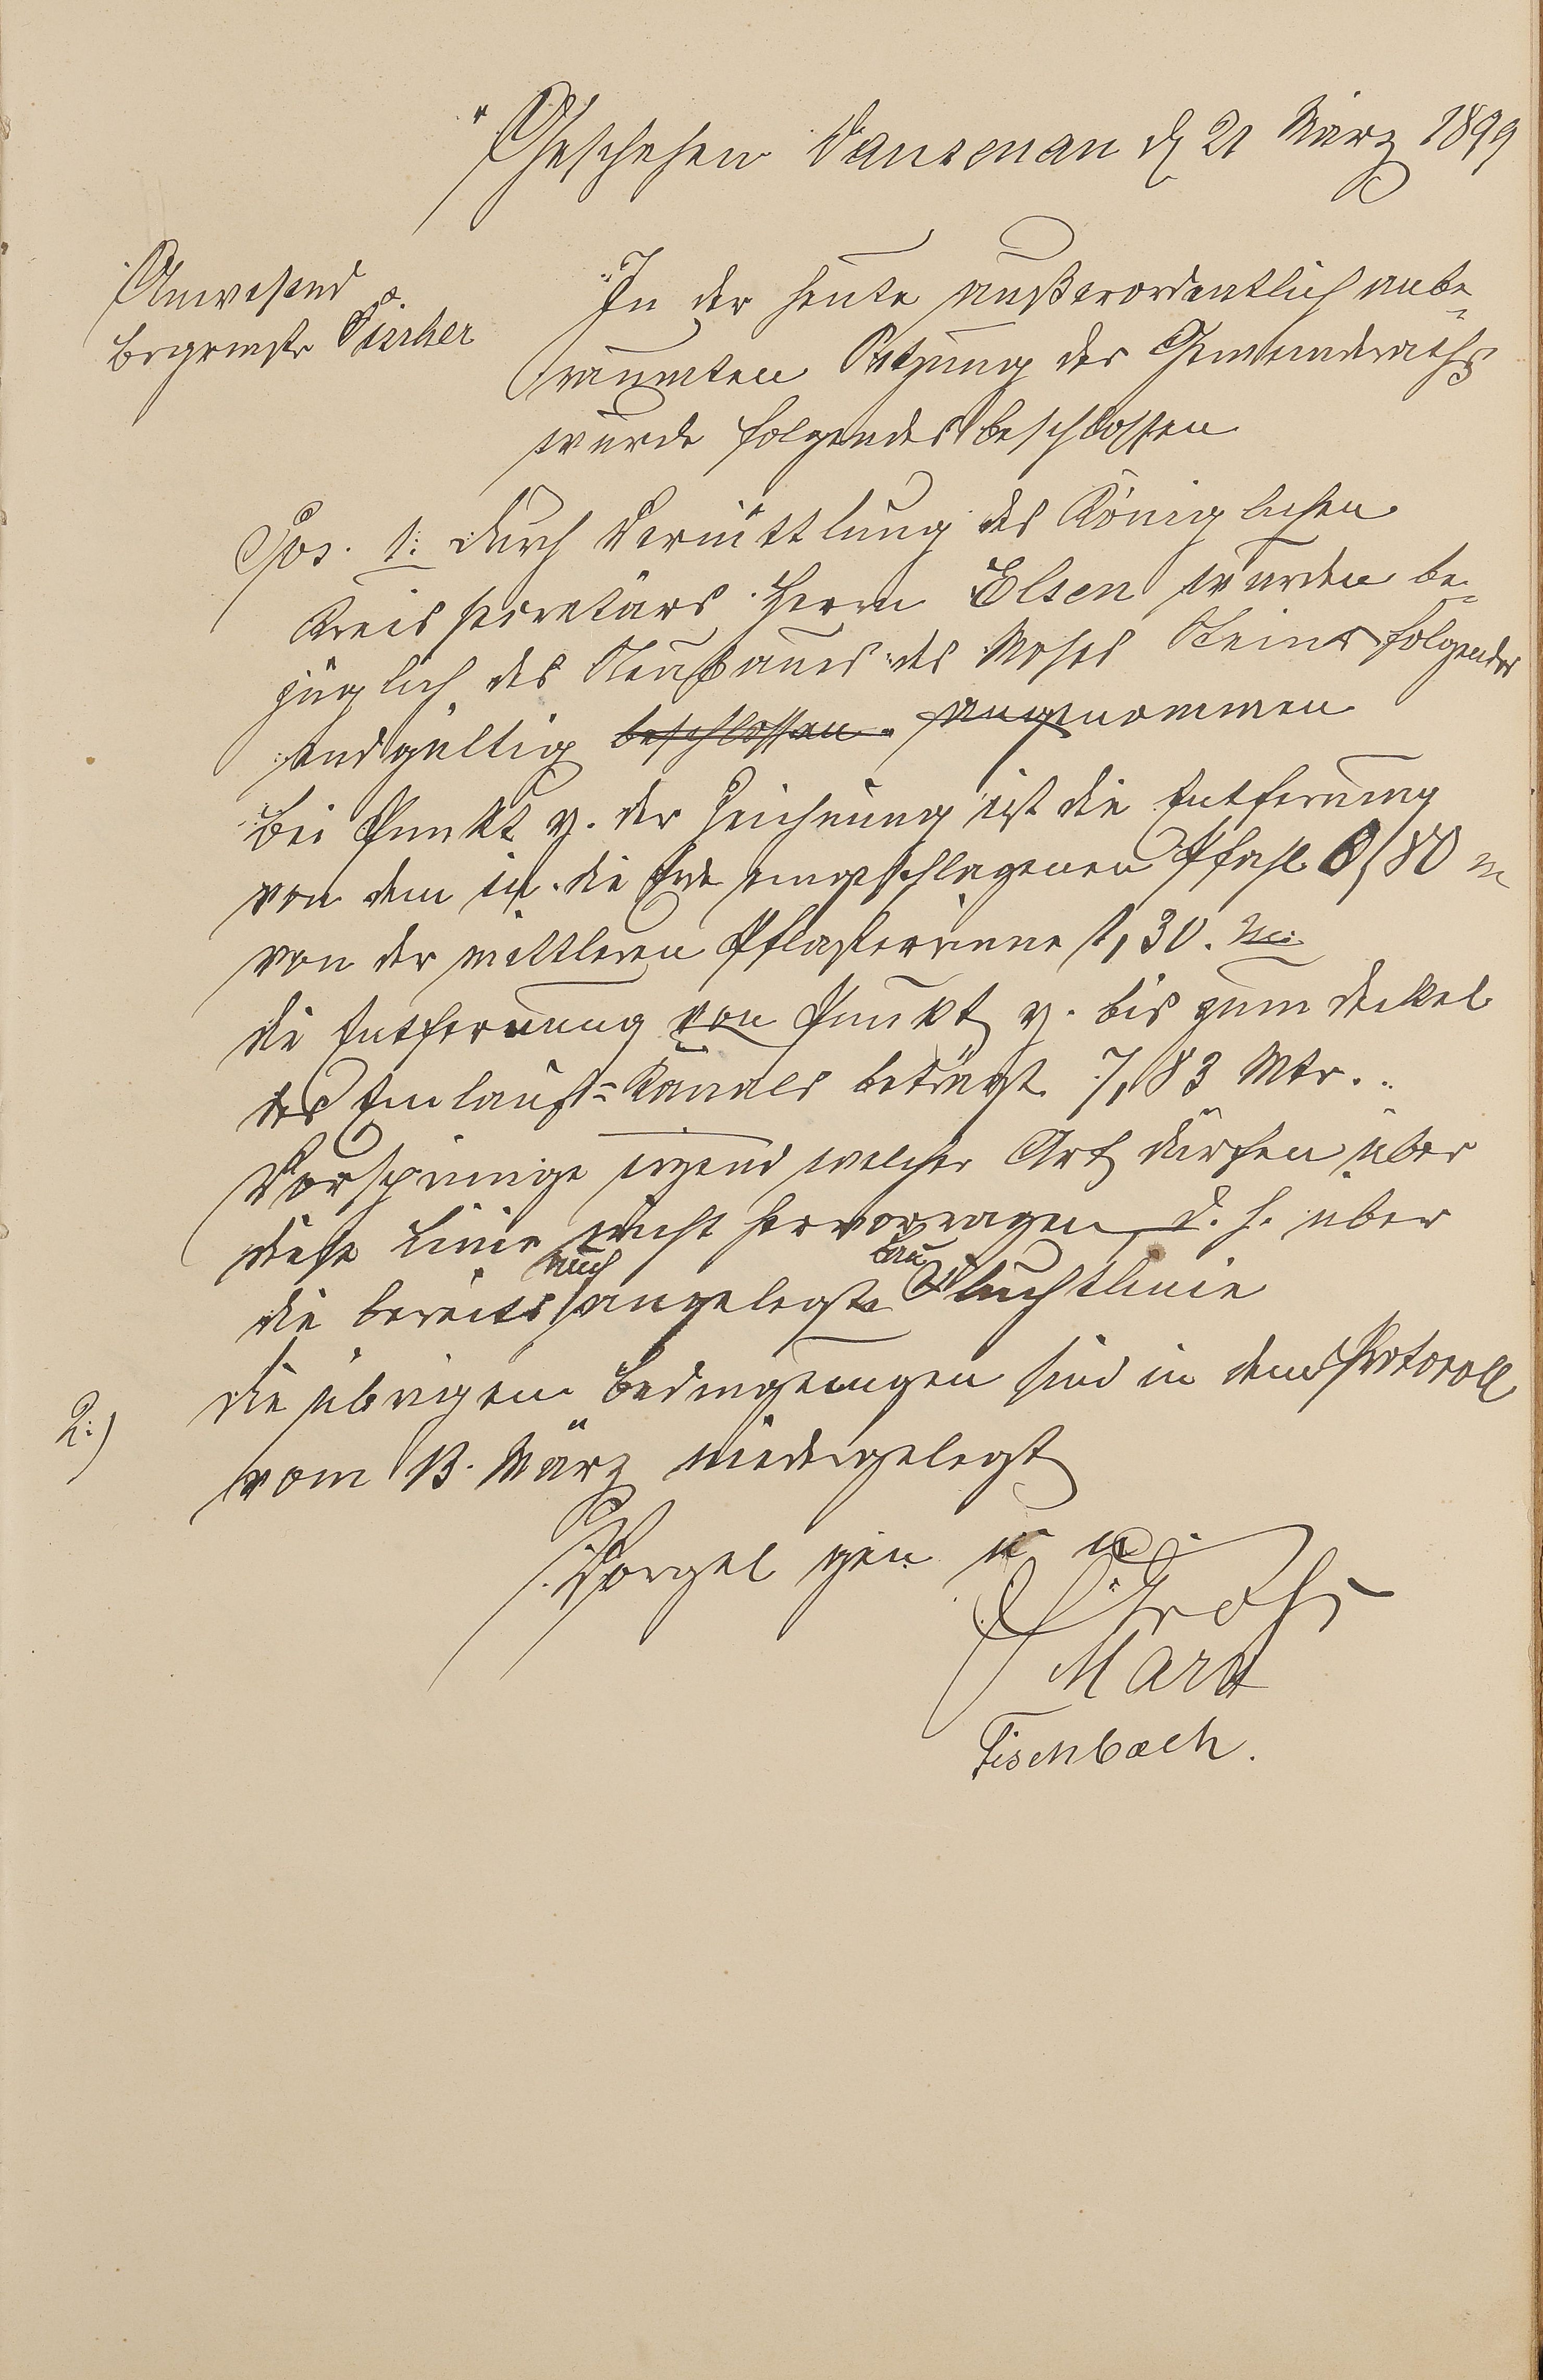 Geschehen Dausenau d 21 März 1899
Anwesend
Brgrmstr
In der heute außerordentlich anbe-
raumten Sitzung des Gemeinderaths
wurde folgendes beschlossen
Pos. 1: Durch Vermittlung des Königlichen
Kreissecretärs Herrn Elsen wurden be-
züglich des Neubaues des Moses Stein folgendes
endgültig beschlossen angenommen
Bei Punkt y. der Zeichnung ist die Entfernung
von dem in die Erde eingeschlagenen Pfahl 0,80 m
von der mittleren Pflasterrinne 1,30. m
die Entfernung von Punkt y. bis zum Deckel
des Einlauf-Kanales beträgt 7,83 Mtr.
Vorsprünge irgend welcher Art dürfen über
diese Linie nicht hervorragen, d. h. über
die bereits auch angelegte Bau Fluchtlinie
2:) die übrigen Bedingungen sind in dem Protocoll
vom 13. März niedergelegt
Vorgel gen u u
Groß
Fischbach.